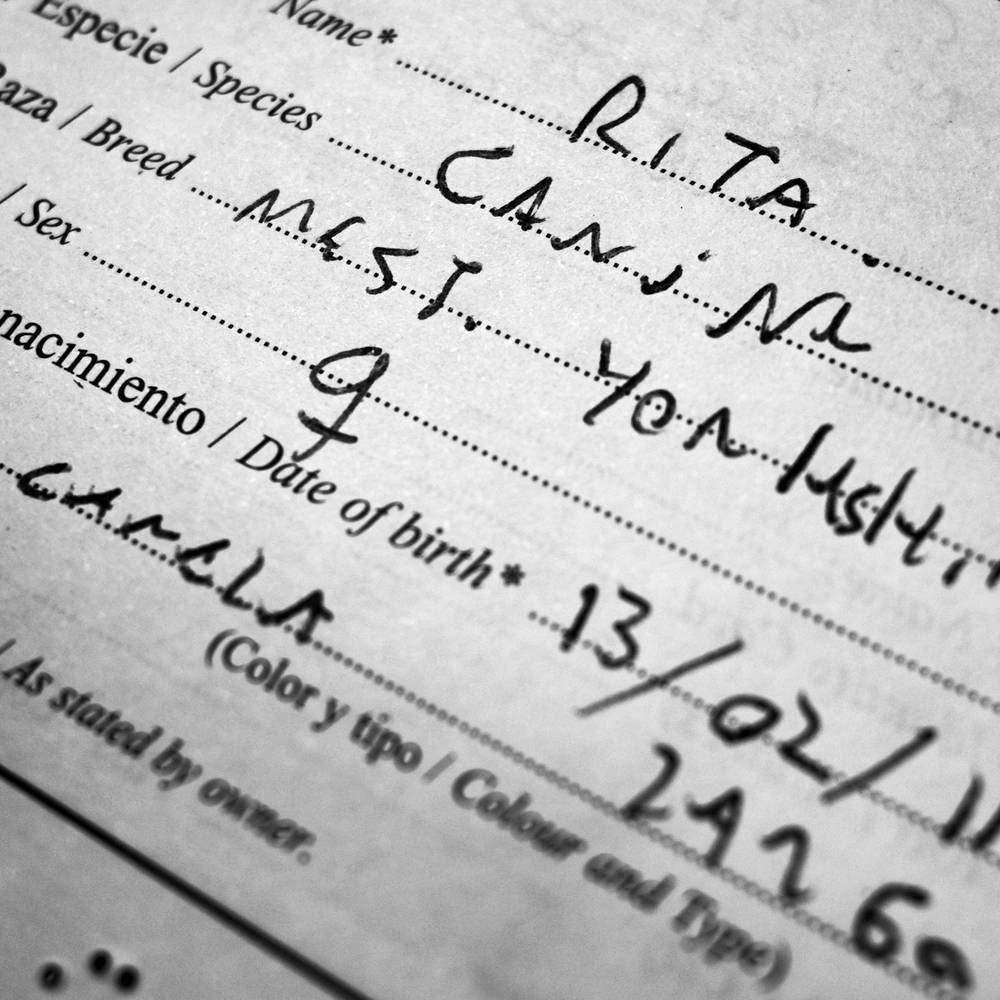 Name* RITA.
Especie / Species CANiNA
Raza / Breed MEST. YORKSHI
/ Sex ♀
nacimiento / Date of birth* 13/02/11
CANELA LAR
(Color y tipo / Colour and Type)
/ As stated by owner.